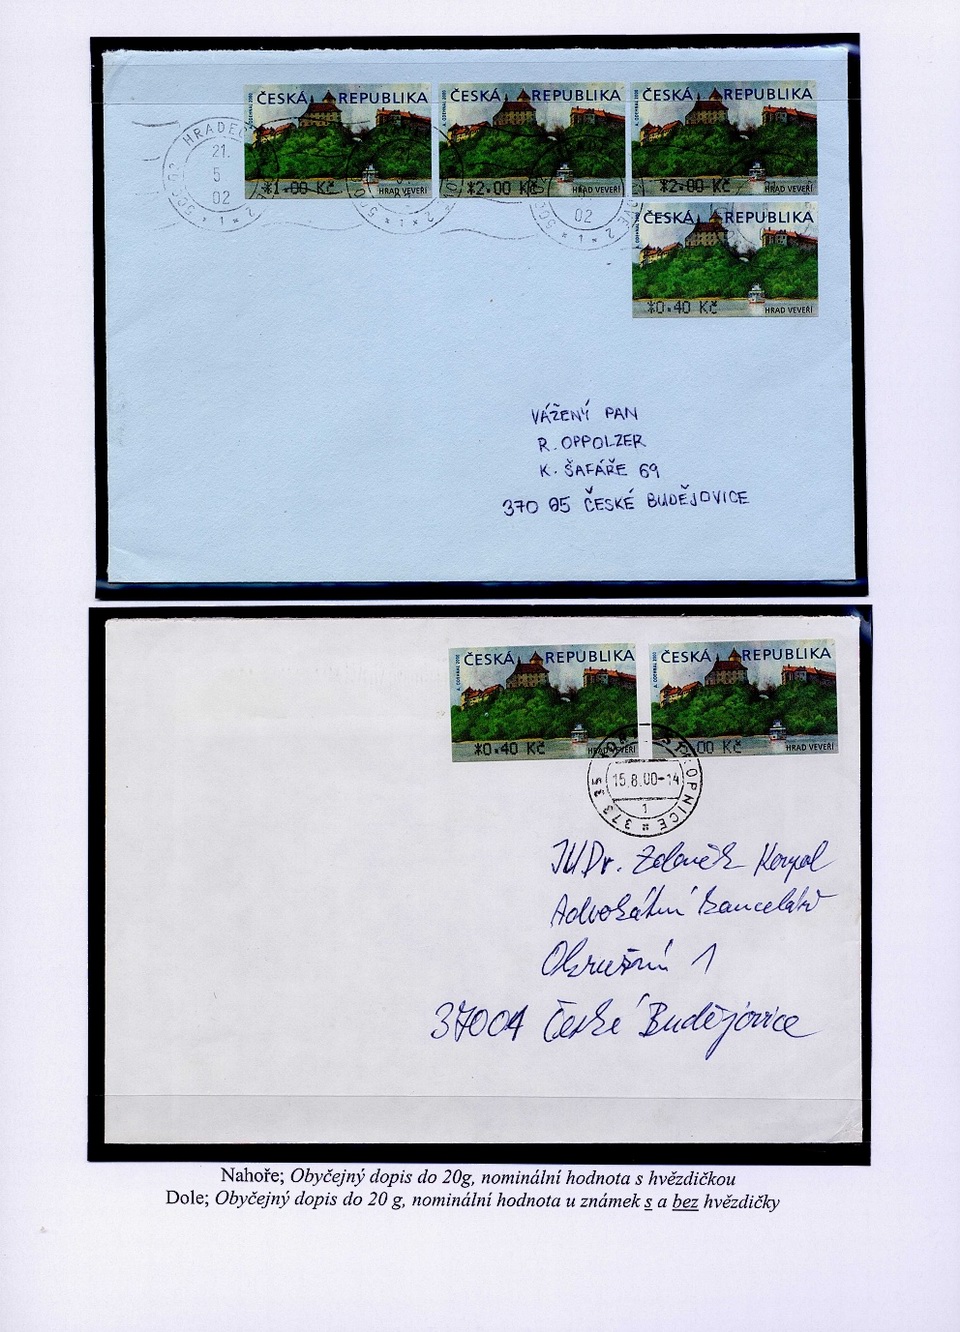 ČESKÁ REPUBLIKA
ČESKÁ REPUBLIKA
ČESKÁ REPUBLIKA
HRADEC
21.
5
02
*1.00 Kč
HRAD VEVEŘÍ
*2.00 Kč
HRAD VEVEŘÍ
02
*2.00 Kč
ČESKÁ REPUBLIKA
*0.40 Kč
HRAD VEVEŘÍ
VÁŽENÝ PAN
R. OPPOLZER
K. ŠAFÁŘE 69
370 05 ČESKÉ BUDĚJOVICE
A. ODEHNAL 2000
ČESKÁ REPUBLIKA
*0.40 Kč
HRAD VEVEŘÍ
A. ODEHNAL 2000
ČESKÁ REPUBLIKA
.00 Kč
HRAD VEVEŘÍ
373 35 STROPNICE
15.8.00-14
1
JUDr. Zdeněk
Advokátní kancelář
Okružní 1
37004 České Budějovice
Nahoře; Obyčejný dopis do 20g, nominální hodnota s hvězdičkou
Dole; Obyčejný dopis do 20 g, nominální hodnota u známek s a bez hvězdičky